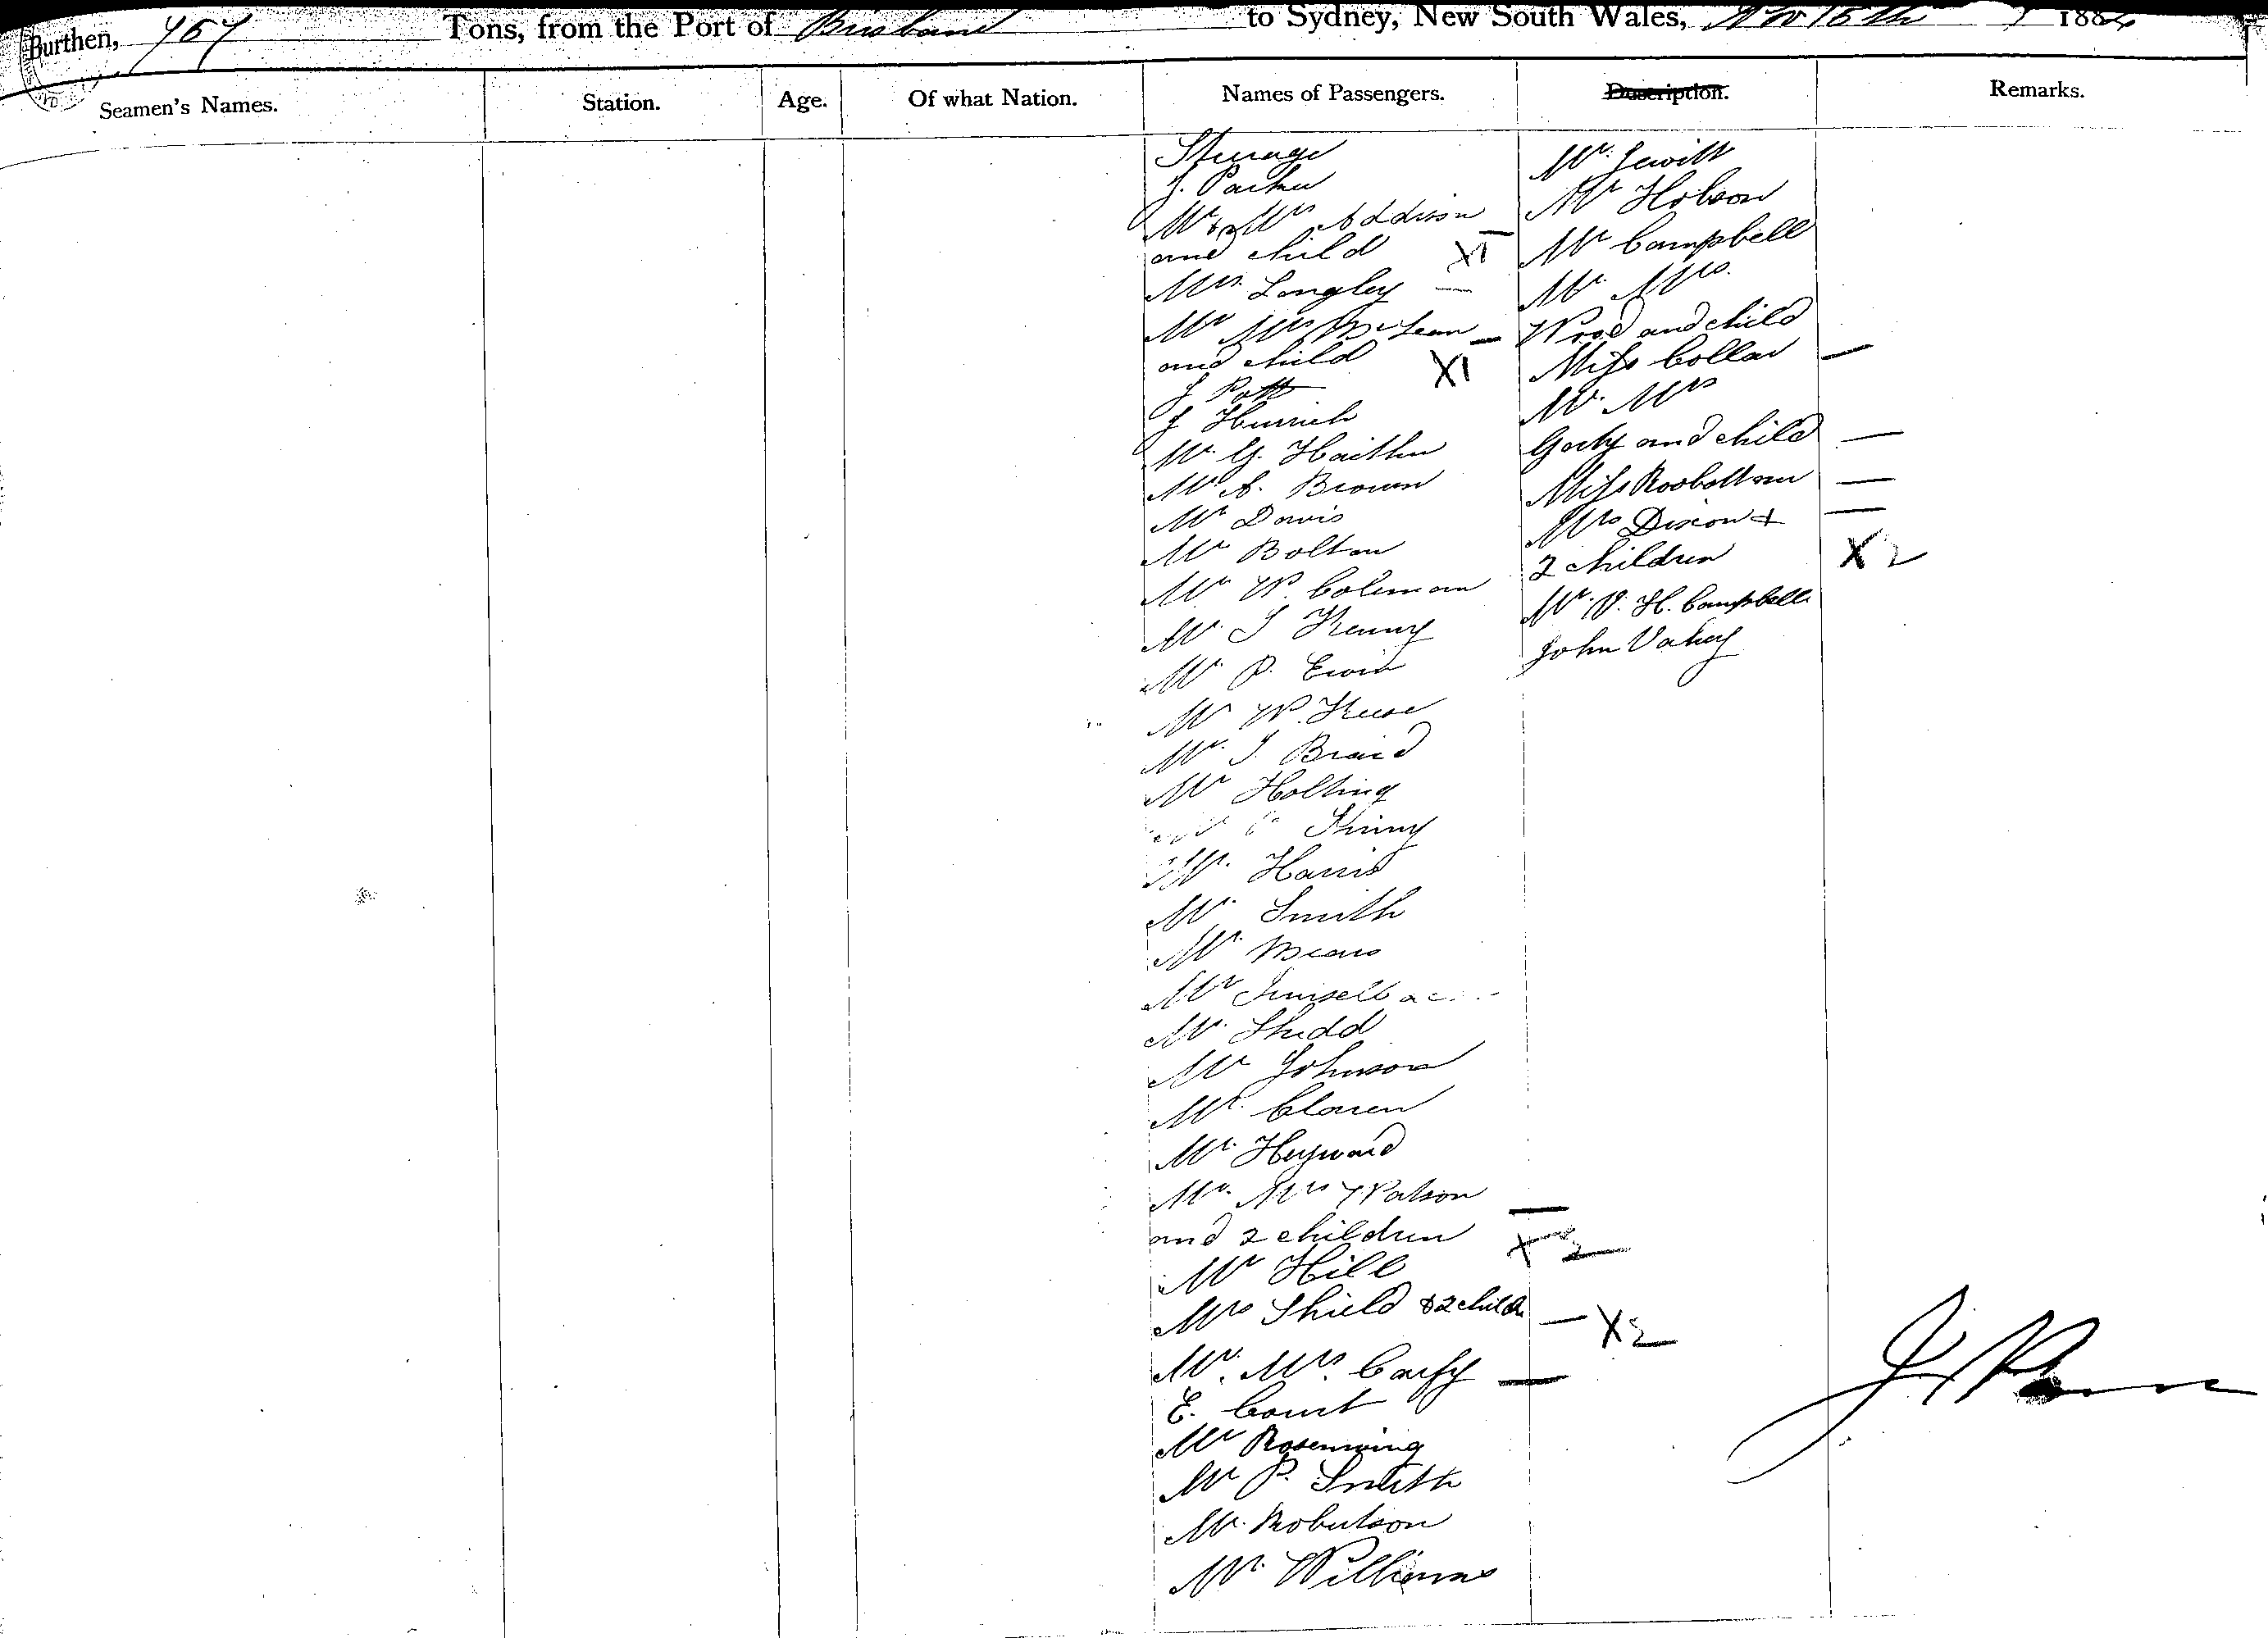 Burthen, 767 Tons, from the Port of Brisbane to Sydney, New South Wales, Nov 15th 1884
Seamen's Names. Station. Age. Of what Nation. Names of Passengers. Description. Remarks.
Steerage
J. Parker
Mr & Mrs Addison
and child X1
Mrs Longley —
Mr Mrs McLean —
and child X1
J Pott
J Heinrich
Mr G. Haithen
Mr A. Brown
Mr Davis
Mr Bolton
Mr W. Coleman
Mr J Kenny
Mr P. Ewin
Mr W. Keese
Mr J. Braid
Mr Holling
Mr Skinny
Mr Harris
Mr Smith
Mr Mears
Mr
Mr Shedd
Mr Johnson
Mr Claren
Mr Heyward
Mr Mrs Watson —
and 2 children X2
Mr Hill
Mrs Shield & 2 childn — X2
Mr. Mrs. —
E. Court
Mr Rosenwing
Mr P. Smith
Mr Robertson
Mr Williams
Mr Jewitt
Mr Hobson
Mr Campbell
Mr Mrs.
Wood and child
Miss Collar —
Mr. Mrs
and child —
Miss Roobottom —
Mrs Dixon & —
2 children X2
Mr. V. H. Campbell
John Vahey